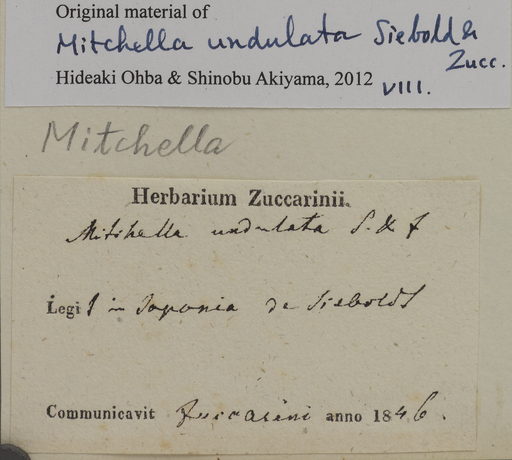 Original material of
Mitchella undulata Siebold &
Zucc.
Hideaki Ohba & Shinobu Akiyama, 2012
VIII.
Mitchella
Herbarium Zuccarinii.
Mitchella undulata S. & Z
Legit in Japonia de Siebold
Communicavit Zuccarini anno 1846.